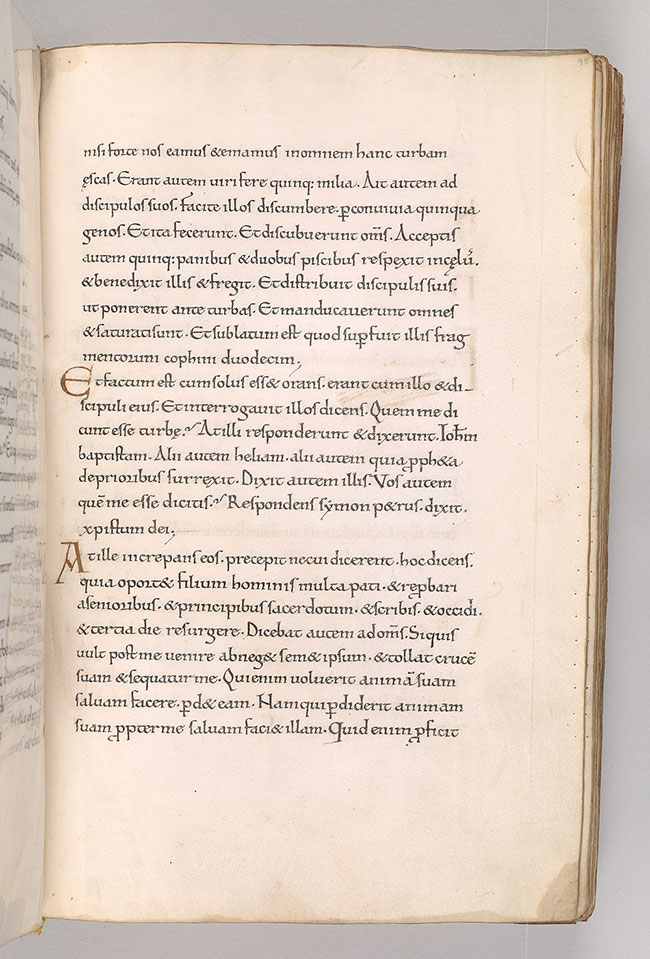 nisi forte nos eamus &emamus inomnem hanc turbam
ęscas. Erant autem viri fere quinq; milia. Ait autem ad
discipulos suos. facite illos discumbere. ꝑconvivia quinqua
genos. Et ita fecerunt. Et discubuerunt om̄s. Acceptis
autem quinq; panibus & duobus piscibus respexit incęlū.
& benedixit illis & fregit. Et distribuit discipulis suis.
ut ponerent ante turbas. Et manducauerunt omnes
& saturati sunt. Et sublatum est quod suꝑfuit illis frag
mentorum cophini duodecim;
Et factum est cum solus ess& orans. erant cum illo & di-
scipuli eius. Et interrogauit illos dicens. Quem me di
cunt esse turbę? At illi responderunt & dixerunt. Ioh̄m
baptistam. Alii autem heliam. alii autem quia ꝓph&a
de prioribus surrexit. Dixit autem illis. Vos autem
quē me esse dicitis? Respondens symon p&rus. dixit.
xpistum dei;
At ille increpans eos. precepit ne cui dicerent. hoc dicens.
quia oport& filium hominis multa pati. & reꝓbari
asenioribus. & principibus sacerdotum. & scribis. & occidi.
& tertia die resurgere. Dicebat autem ad om̄s. Siquis
uult post me venire abneg& sem&ipsum. & tollat crucē
suam & sequatur me. Qui enim voluerit animā suam
salvam facere. ꝑd& eam. Nam qui ꝑdiderit animam
suam ꝓpter me salvam faci& illam. Quid enim ꝓficit